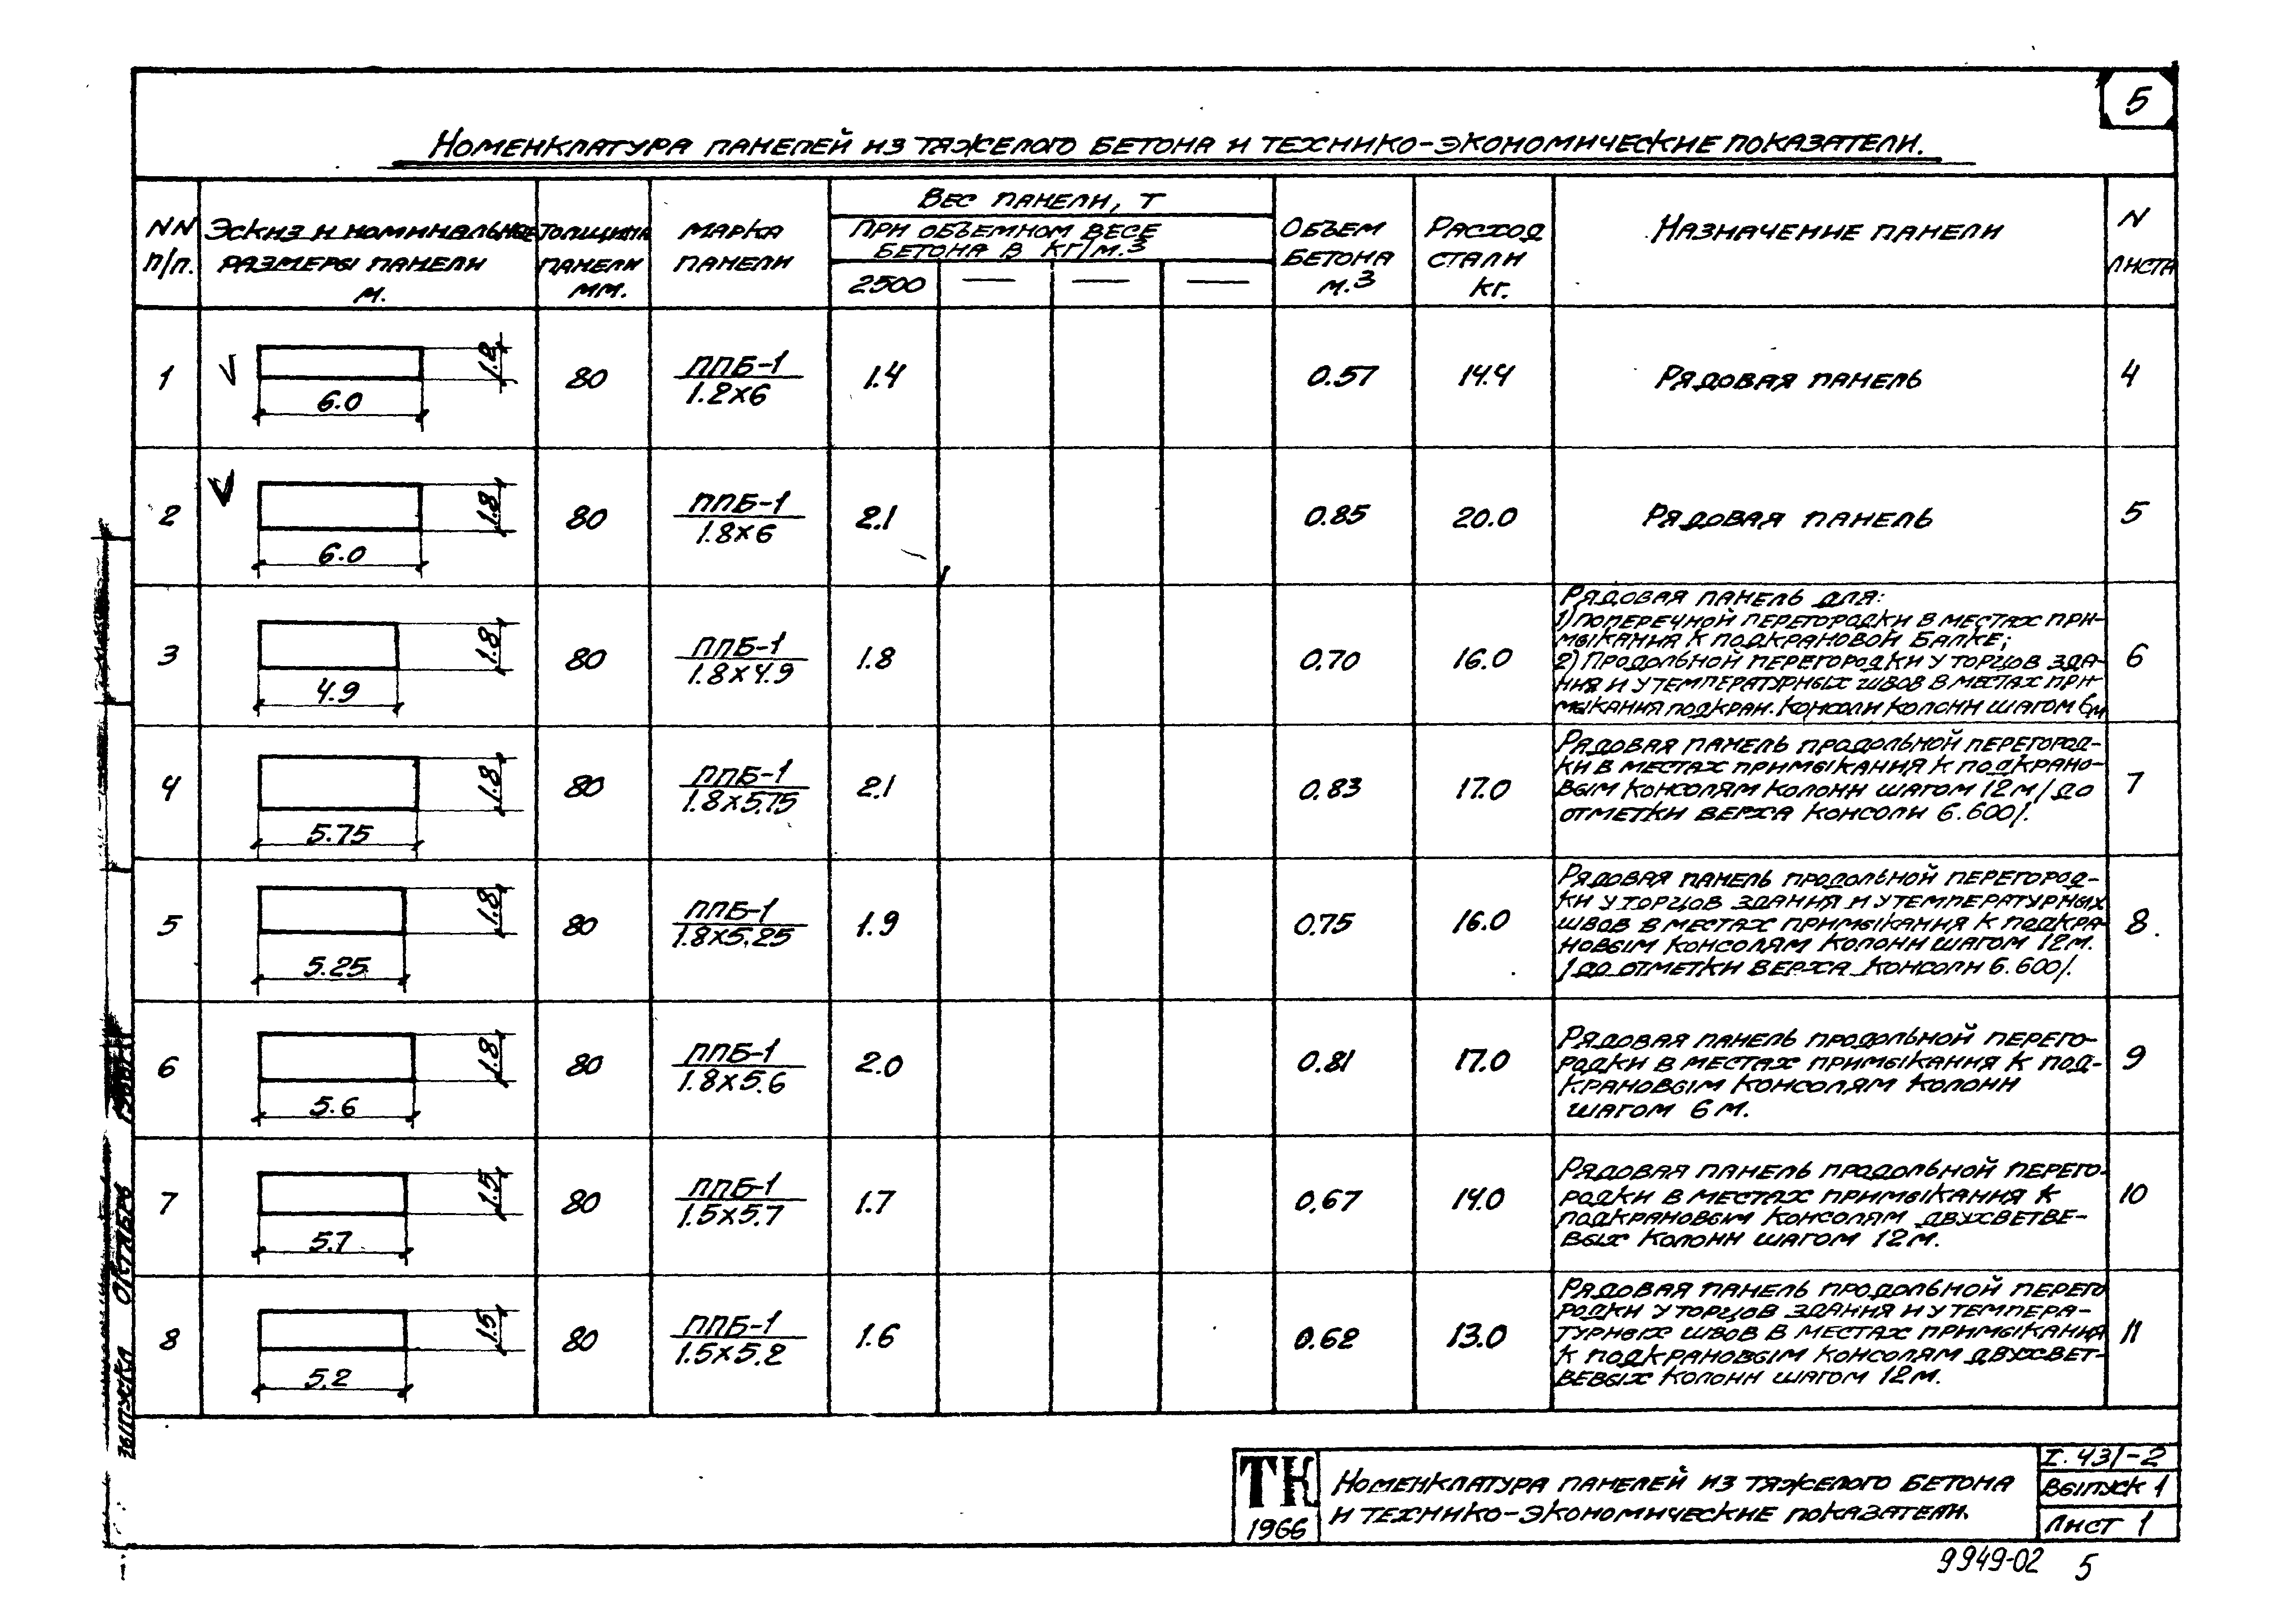 5
Номенклатура панелей из тяжелого бетона и технико-экономические показатели.
NN п/п.
Эскиз и номинальные размеры панели м.
Толщина панели мм.
Марка панели
Вес панели, т
При объемном весе
бетона в кг/м.3
2500 — — —
Объем бетона м.3
Расход стали кг.
Назначение панели
N листа
1 6.0 1.2 80 ППБ-1 1.2х6 1.4 0.57 14.4 Рядовая панель 4
2 6.0 1.8 80 ППБ-1 1.8х6 2.1 0.85 20.0 Рядовая панель 5
3 4.9 1.8 80 ППБ-1 1.8х4.9 1.8 0.70 16.0
Рядовая панель для:
1) поперечной перегородки в местах при-
мыкания к подкрановой балке;
2) Продольной перегородки у торцов зда-
ния и у температурных швов в местах при
мыкания подкран. консоли колонн шагом 6м
6
4 5.75 1.8 80 ППБ-1 1.8х5.75 2.1 0.83 17.0
Рядовая панель продольной перегород-
ки в местах примыкания к подкрано-
вым консолям колонн шагом 12м /до
отметки верха консоли 6.600/.
7
5 5.25 1.8 80 ППБ-1 1.8х5.25 1.9 0.75 16.0
Рядовая панель продольной перегород-
ки у торцов здания и у температурных
швов в местах примыкания к подкра-
новым консолям колонн шагом 12м.
/до отметки верха консоли 6.600/.
8.
6 5.6 1.8 80 ППБ-1 1.8х5.6 2.0 0.81 17.0
Рядовая панель продольной перего-
родки в местах примыкания к под-
крановым консолям колонн
шагом 6м.
9
7 5.7 1.5 80 ППБ-1 1.5х5.7 1.7 0.67 14.0
Рядовая панель продольной перего-
родки в местах примыкания к
подкрановым консолям двухветве-
вых колонн шагом 12м.
10
8 5.2 1.5 80 ППБ-1 1.5х5.2 1.6 0.62 13.0
Рядовая панель продольной перего
родки у торцов здания и у темпера-
турных швов в местах примыкания
к подкрановым консолям двухвет-
вевых колонн шагом 12м.
11
выпуска октябрь
ТК
1966
Номенклатура панелей из тяжелого бетона
и технико-экономические показатели.
I.431-2
Выпуск 1
Лист 1
9949-02 5